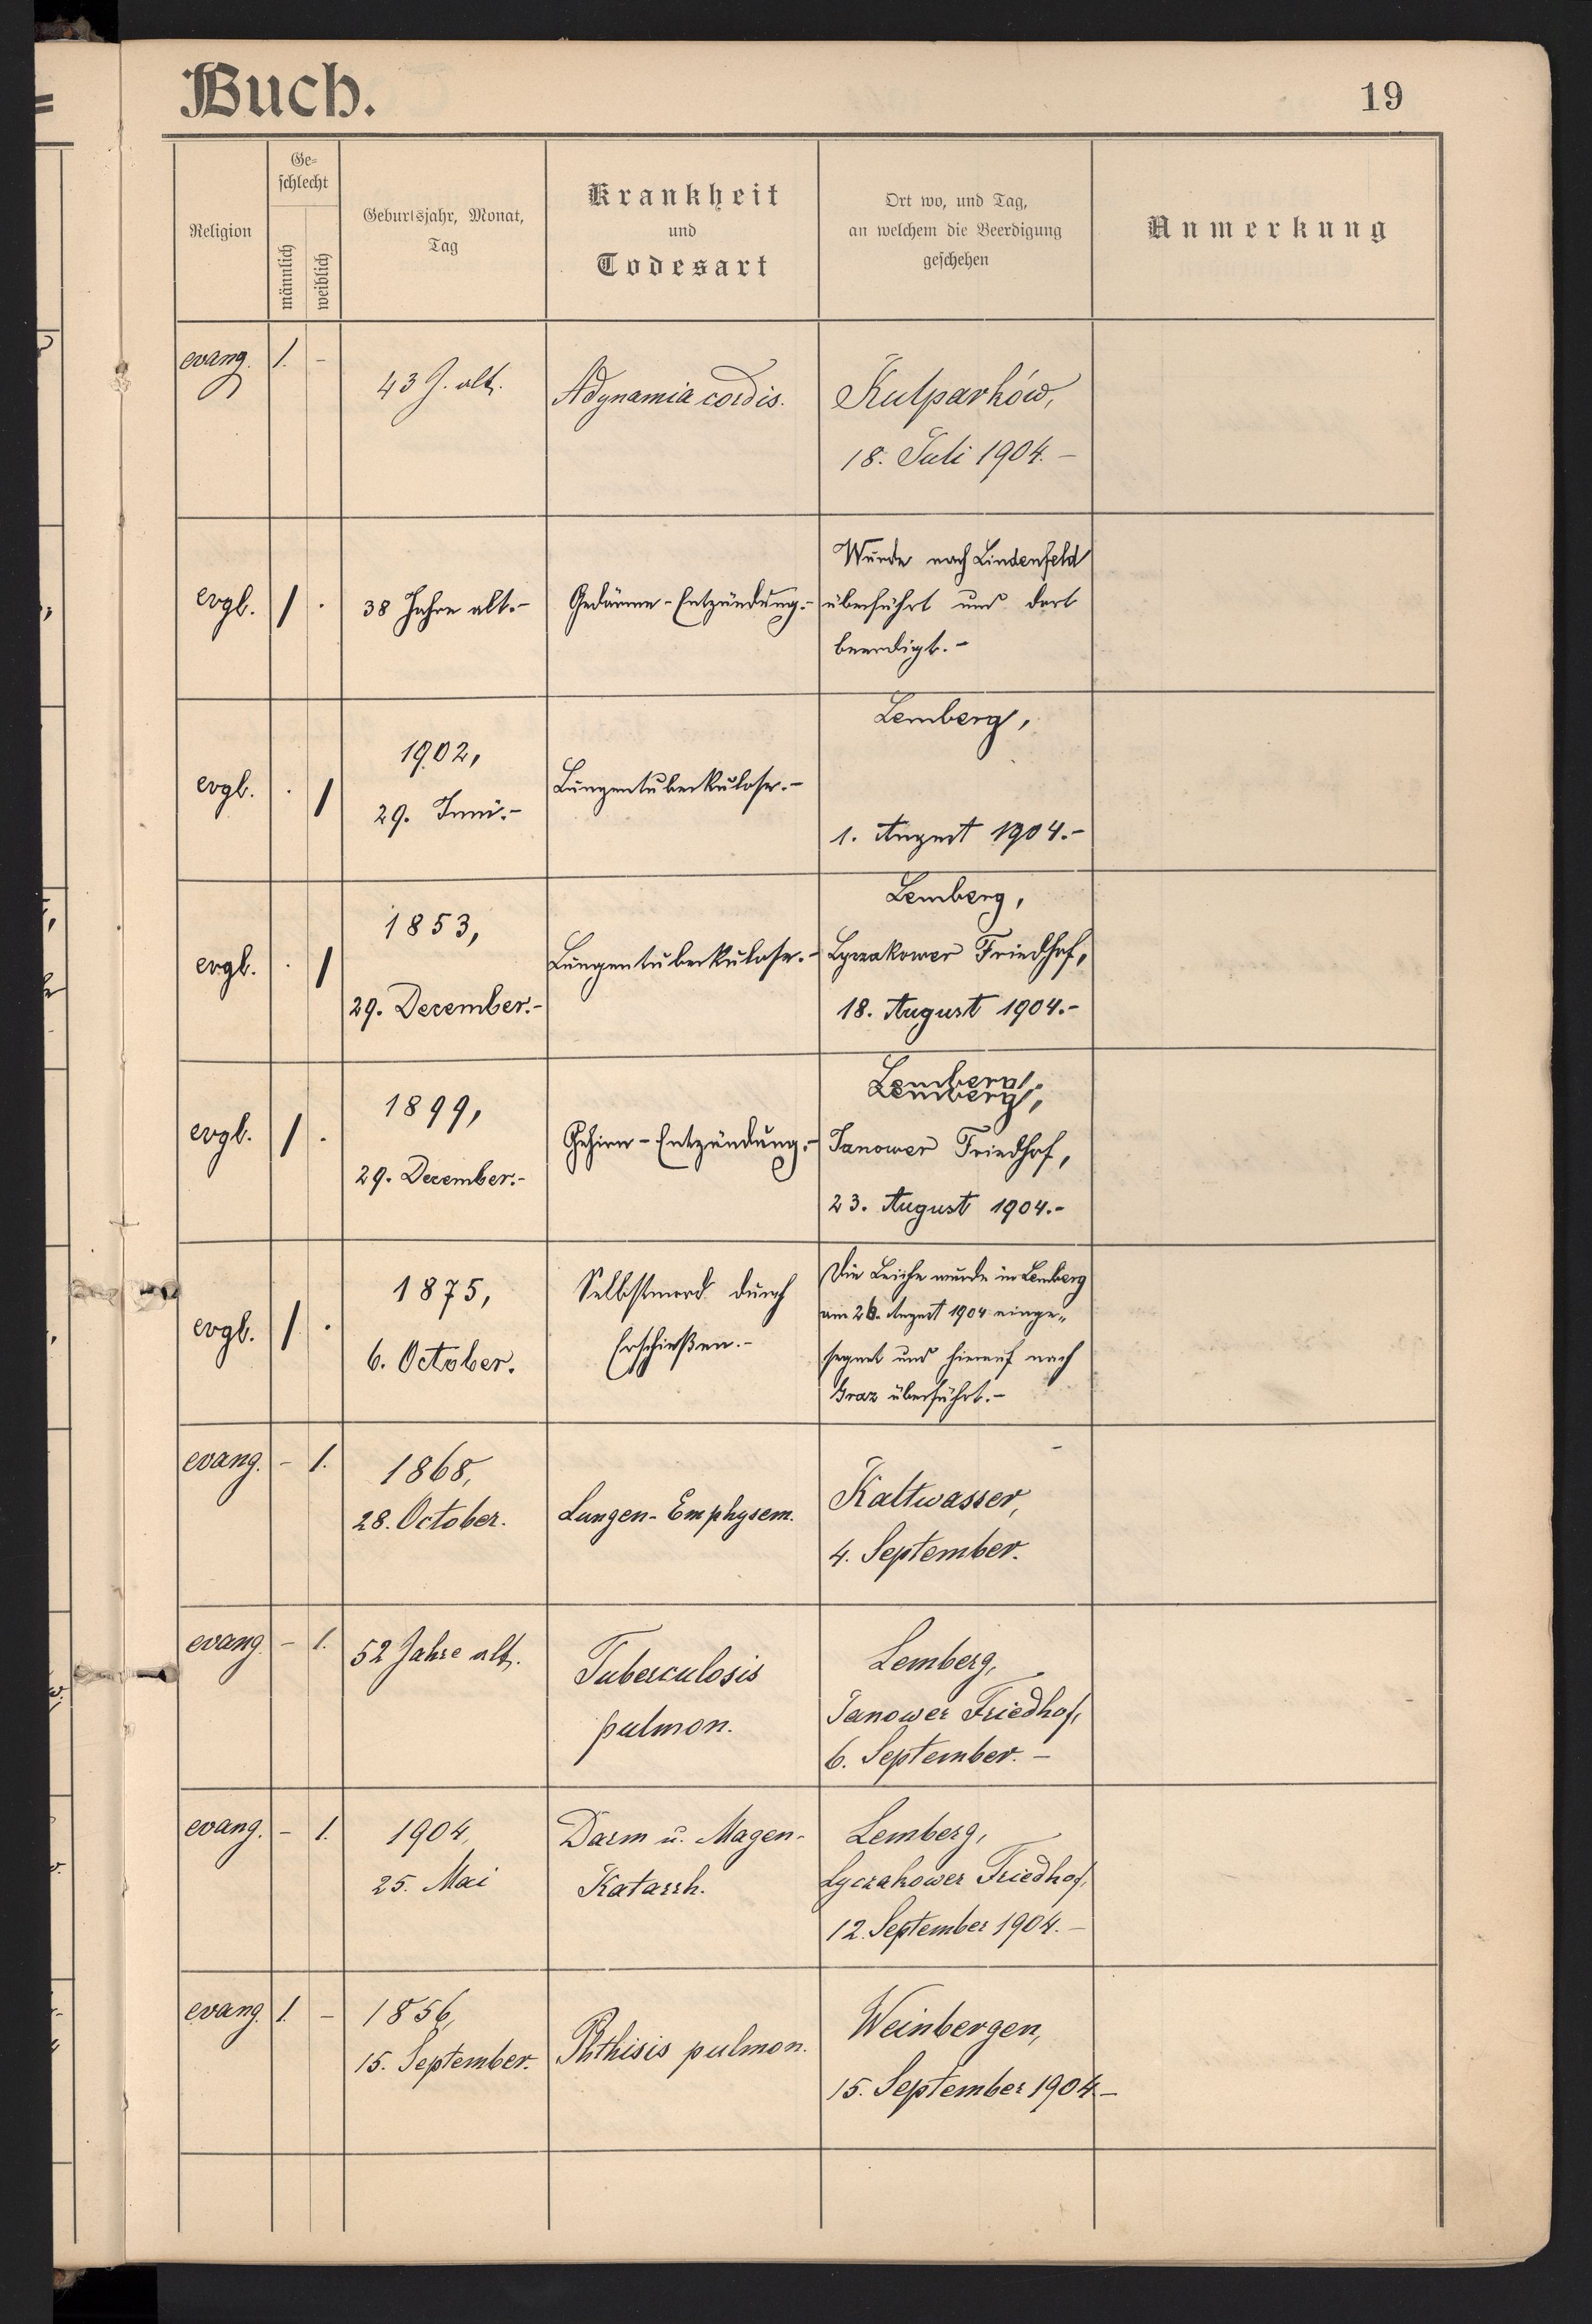 Buch.
19
Religion
Ge-
schlecht
männlich
weiblich
Geburtsjahr, Monat,
Tag
Krankheit
und
Todesart
Ort wo, und Tag,
an welchem die Beerdigung
geschehen
Anmerkung
evang. 1. –
43 J. alt.
Adynamia cordis.
Kulparków,
18. Juli 1904. –
evgl. 1 .
38 Jahre alt.–
Gedärme-Entzündung.–
Wurde nach Lindenfeld
überführt und dort
beerdigt.–
evgl. . 1
1902,
29. Juni.–
Lungentuberkulose.–
Lemberg,
1. August 1904.–
evgl. . 1
1853,
29. December.–
Lungentuberkulose.–
Lemberg,
Lyczakower Friedhof,
18. August 1904.–
evgl. 1 .
1899,
29. December.–
Gehirn-Entzündung.–
Lemberg,
Lemberg,
Janower Friedhof,
23. August 1904.–
evgl. 1 .
1875,
6. October.
Selbstmord durch
Erschießen.–
Die Leiche wurde in Lemberg
am August 1904 einge„
segnet und hierauf nach
Graz überführt.–
evang. – 1.
1868,
28. October.
Lungen-Emphysem.
Kaltwasser,
4. September.
evang. – 1.
52 Jahre alt.
Tuberculosis
pulmon.
Lemberg,
Janower Friedhof,
6. September. –
evang. – 1.
1904,
25. Mai
Darm u. Magen-
Katarrh.
Lemberg,
Lyczakower Friedhof,
12. September 1904. –
evang. 1. –
1856,
15. September.
Phthisis pulmon.
Weinbergen,
15. September 1904 –